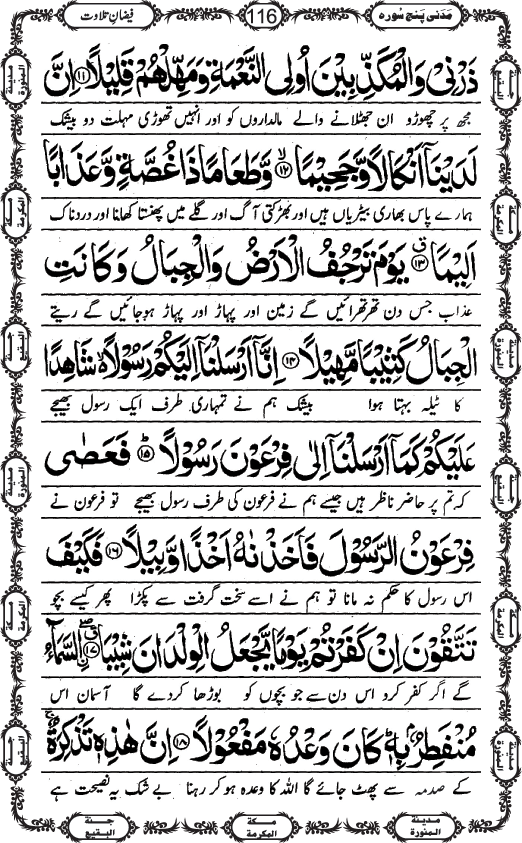 مَدَنی پنج سُورہ
116
فیضانِ تلاوت
ذَرْنِیْ وَالْمُكَذِّبِیْنَ اُولِی النَّعْمَةِ وَمَهِّلْهُمْ قَلِیْلًا ﴿۱۱﴾ اِنَّ
مجھ پر چھوڑو ان جھٹلانے والے مالداروں کو اور انہیں تھوڑی مہلت دو بیشک
لَدَیْنَاۤ اَنْكَالًا وَّجَحِیْمًا ﴿۱۲﴾ وَّطَعَامًا ذَا غُصَّةٍ وَّعَذَابًا
ہمارے پاس بھاری بیڑیاں ہیں اور بھڑکتی آگ اور گلے میں پھنستا کھانا اور دردناک
اَلِیْمًا ﴿۱۳﴾ یَوْمَ تَرْجُفُ الْاَرْضُ وَالْجِبَالُ وَكَانَتِ
عذاب جس دن تھرتھرائیں گے زمین اور پہاڑ اور پہاڑ ہوجائیں گے ریتے
الْجِبَالُ كَثِیْبًا مَّهِیْلًا ﴿۱۴﴾ اِنَّاۤ اَرْسَلْنَاۤ اِلَیْكُمْ رَسُوْلًا شَاهِدًا
کا ٹیلہ بہتا ہوا بیشک ہم نے تمہاری طرف ایک رسول بھیجے
عَلَیْكُمْ كَمَاۤ اَرْسَلْنَاۤ اِلٰی فِرْعَوْنَ رَسُوْلًا ﴿۱۵﴾ فَعَصٰی
کہ تم پر حاضر ناظر ہیں جیسے ہم نے فرعون کی طرف رسول بھیجے تو فرعون نے
فِرْعَوْنُ الرَّسُوْلَ فَاَخَذْنٰهُ اَخْذًا وَّبِیْلًا ﴿۱۶﴾ فَكَیْفَ
اس رسول کا حکم نہ مانا تو ہم نے اسے سخت گرفت سے پکڑا پھر کیسے بچو
تَتَّقُوْنَ اِنْ كَفَرْتُمْ یَوْمًا یَّجْعَلُ الْوِلْدَانَ شِیْبَا ﴿۱۷﴾ السَّمَآءُ
گے اگر کفر کرو اس دن سے جو بچوں کو بوڑھا کردے گا آسمان اس
مُنْفَطِرٌۢ بِهٖ كَانَ وَعْدُهٗ مَفْعُوْلًا ﴿۱۸﴾ اِنَّ هٰذِهٖ تَذْكِرَةٌ
کے صدمہ سے پھٹ جائے گا اللہ کا وعدہ ہو کر رہنا بے شک یہ نصیحت ہے
جنة البقيع
مكة المكرمة
مدينة المنورة